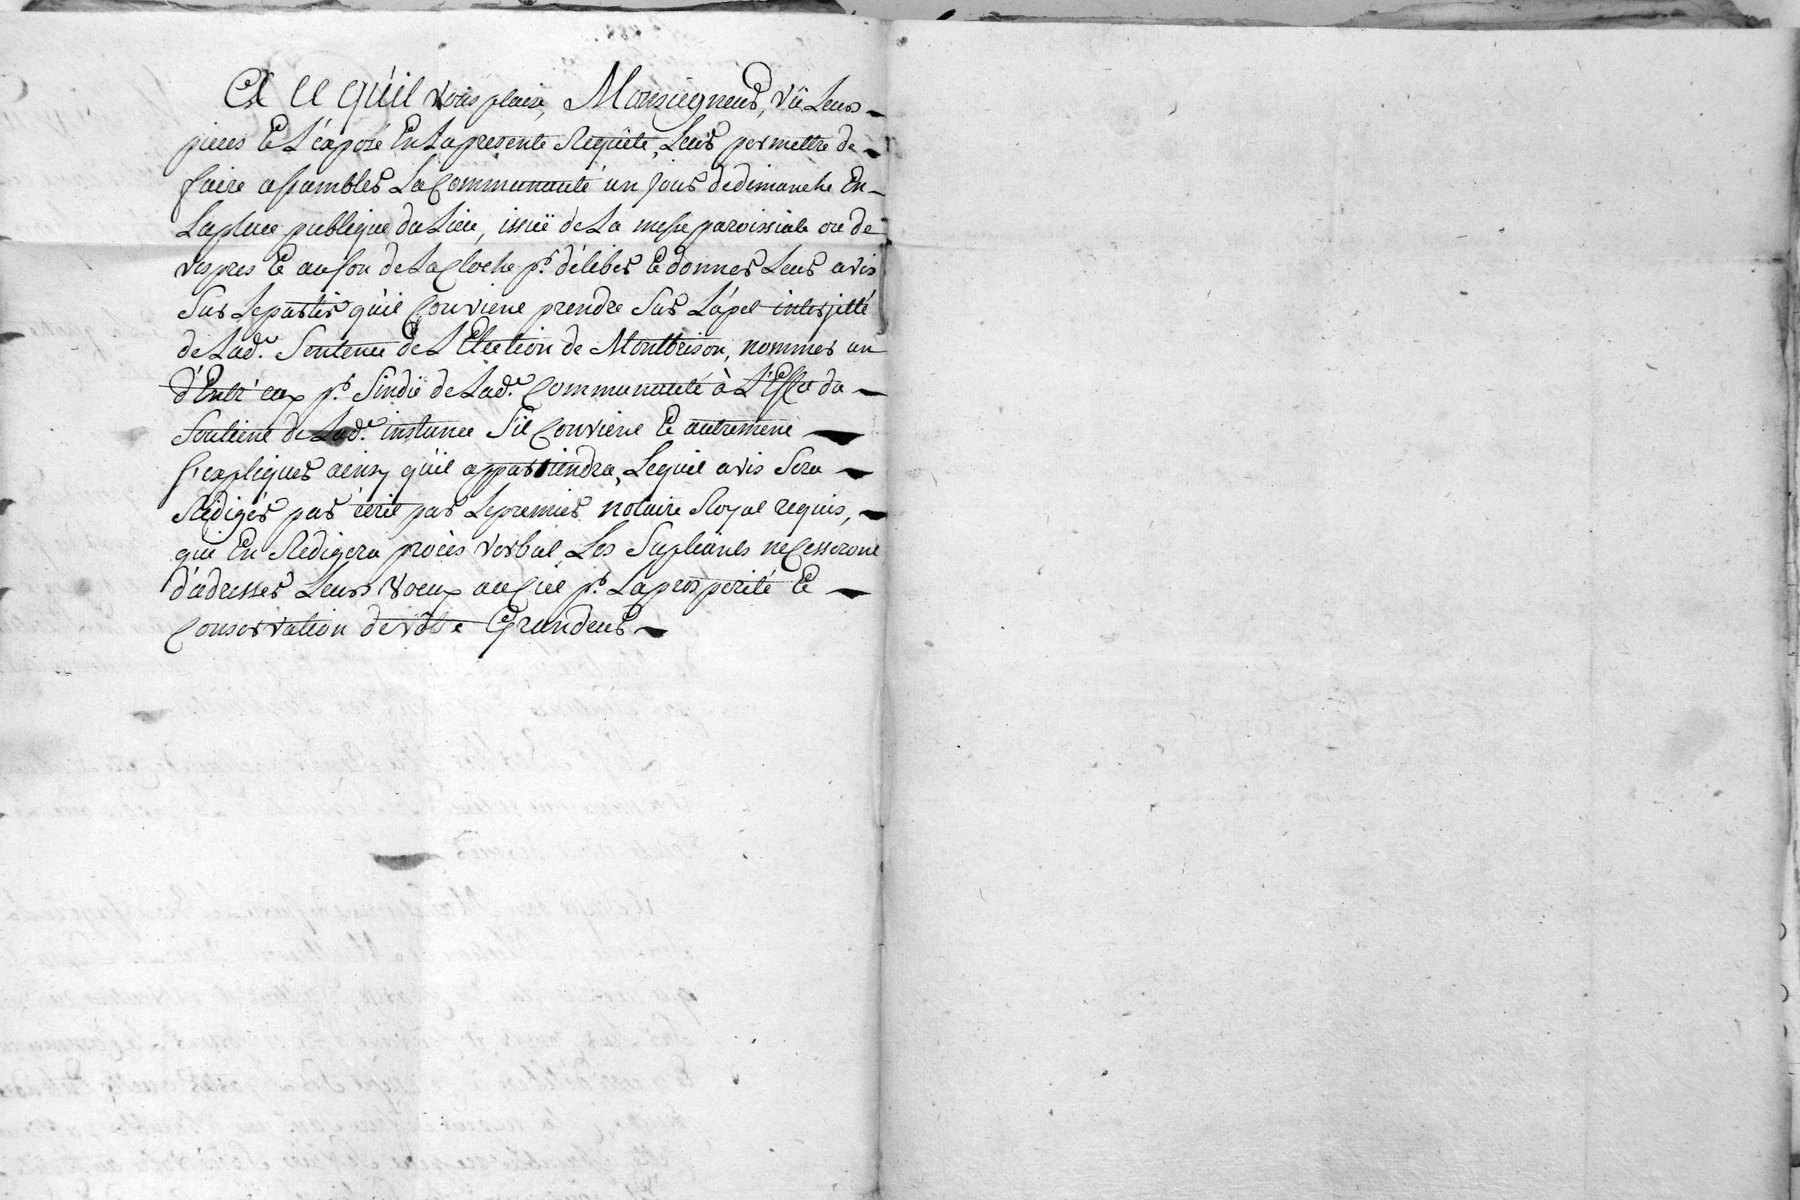 A ce qu'il vous plaise, Monseigneur, vû Leurs
pieces Et L'éxposé En La presente Requête, Leur permettre de
faire assambler La Communauté un jour de dimanche En
La place publique du Lieu, issuë de La messe paroissiale ou de
vespres Et au son de La Cloche pr. déliber Et donner Leur avis
Sur Le partis qu'il Convient prendre Sur L'apel interjetté
de Lade. Sentence de L'Election de Montbrison, nommer un
d'Entr'eux pr. Sindic de Lade. Communauté à L'Effet du
Soutient de Lade. instance S'il Convient Et autrement
s'expliquer ainsy qu'il appartiendra, Lequel avis Sera
Rédigér par écrit par Le premier notaire Royal requis,
qui En Redigera procès verbal Les Supliants ne Cesseront
d'adresser Leurs voeux au Ciel pr. La prosperité Et
Conservation de vôtre Grandeur